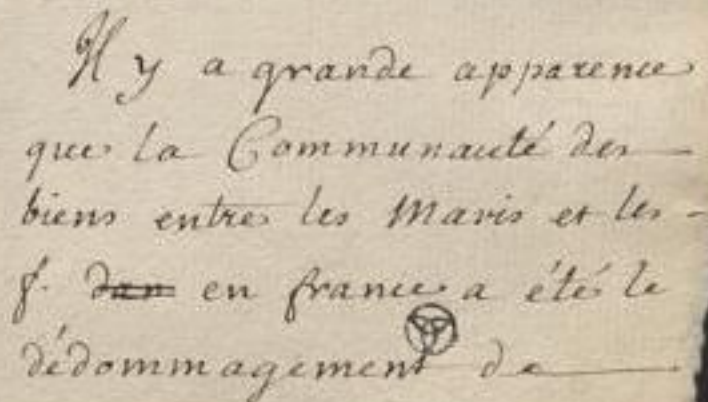 Il y a grande apparence
que la Communauté des
biens entre les Maris et les
f. dan en france a été le
dédommagement de